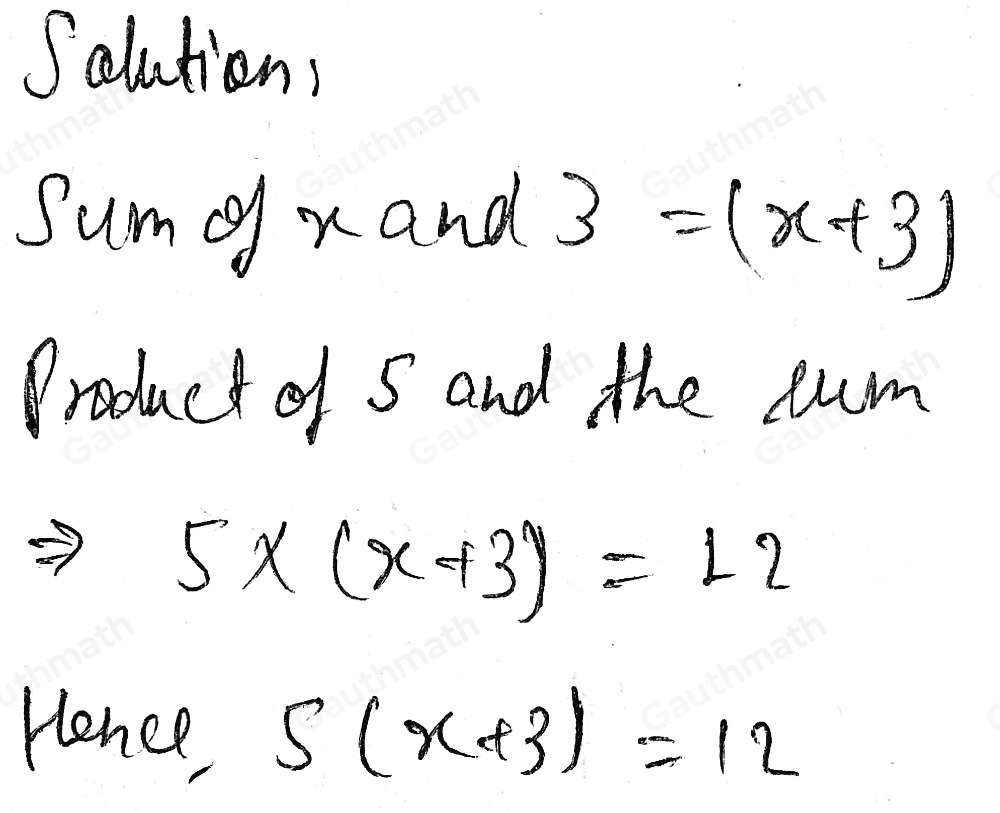 Solution,
Sum of x and 3 = (x+3)
Product of 5 and the sum
⇒ 5 × (x+3) = 12
Hence, 5 (x+3) = 12